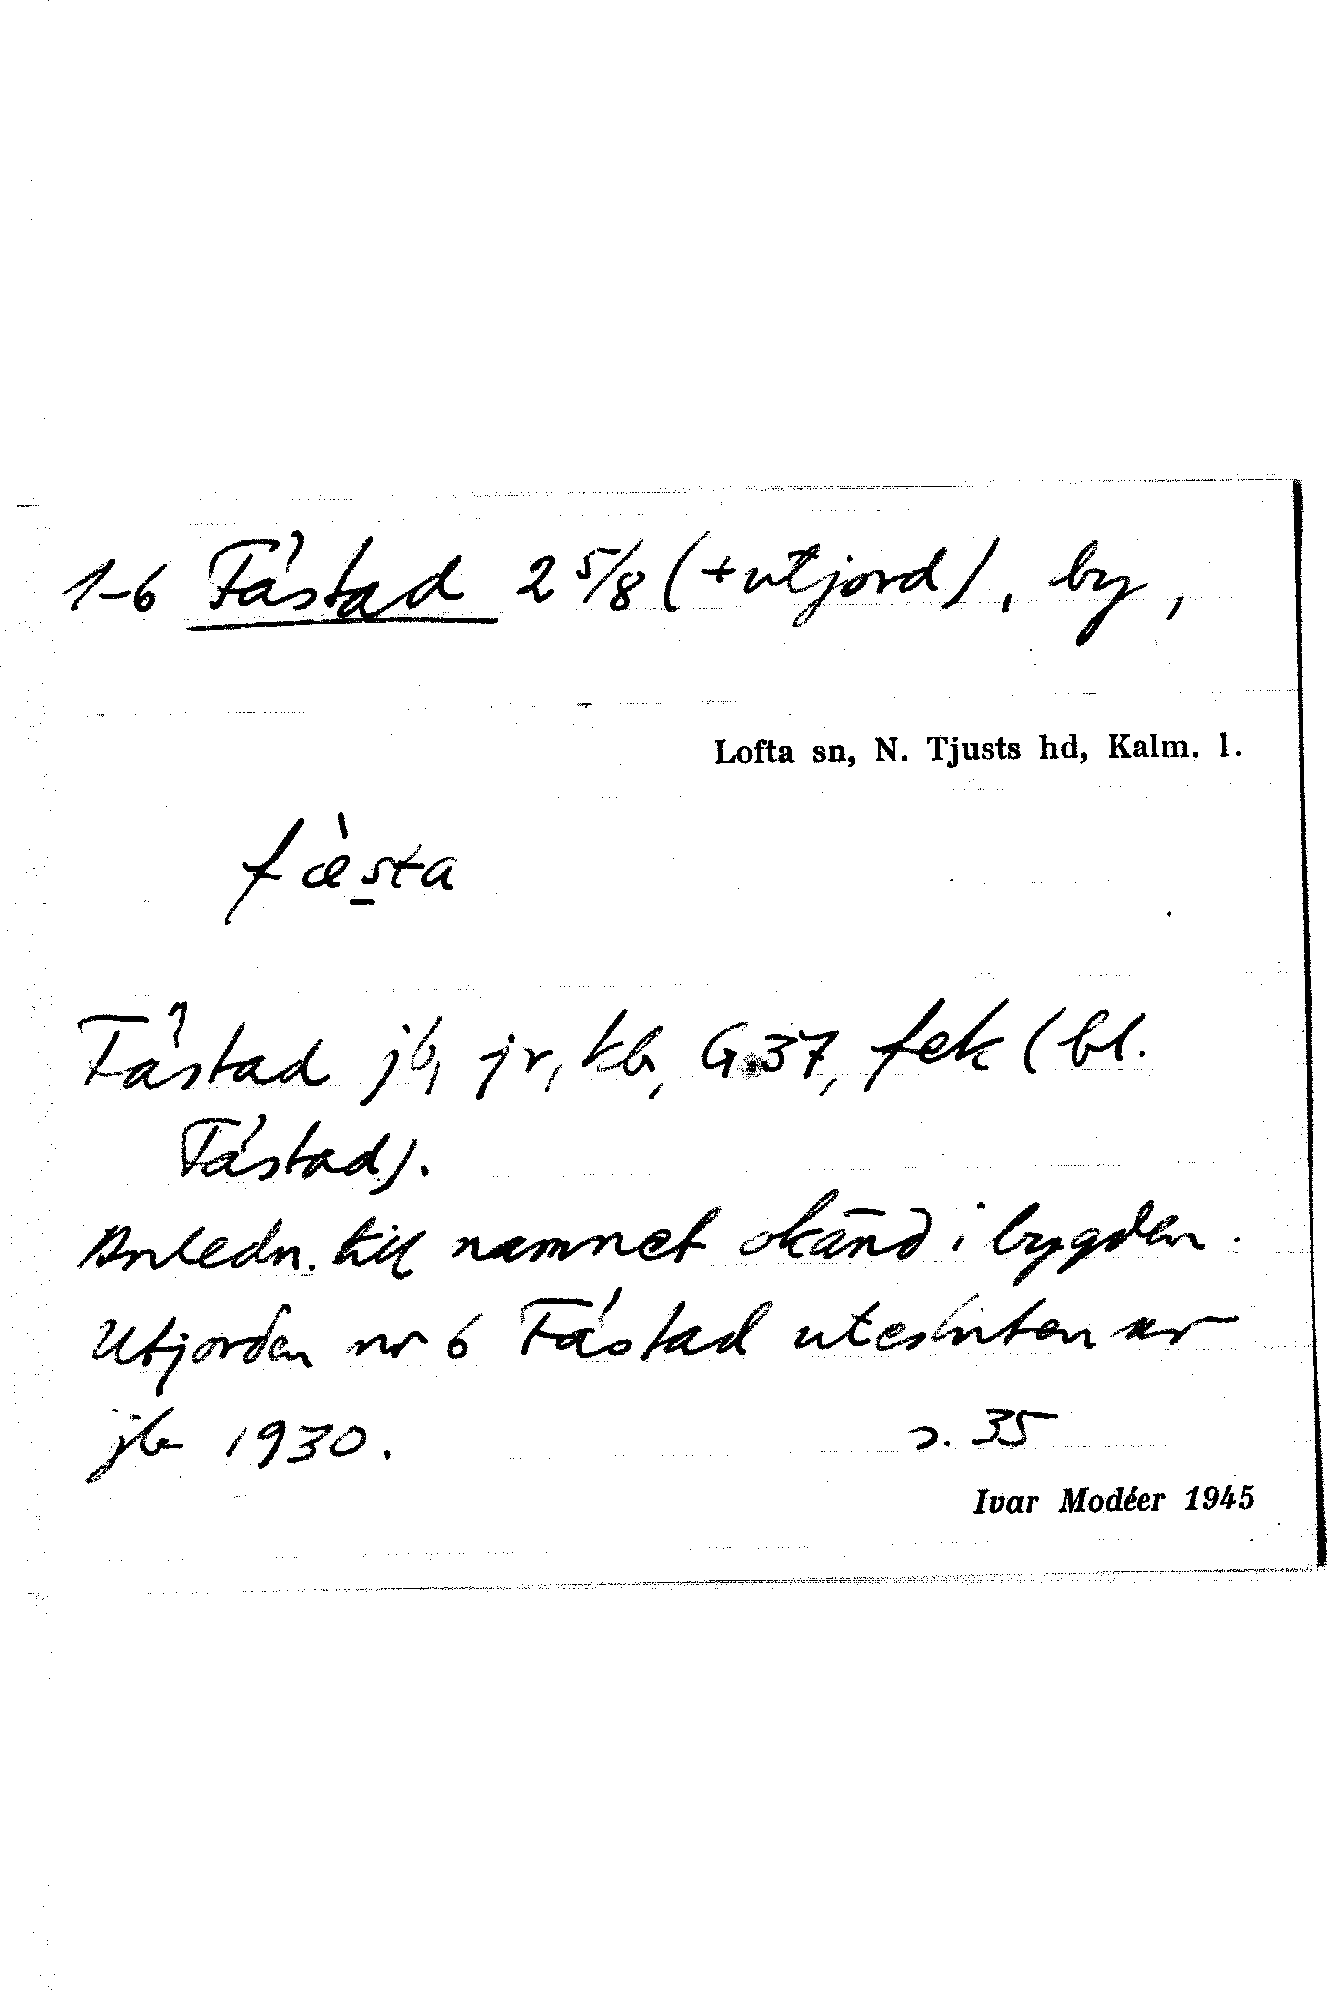 1-6 Fástad 2 5/8 (+utjord), by,
Lofta sn, N. Tjusts hd, Kalm. l.
fæ̀sta
Fástad jb, jr, kb, G 37, fek (bl.
Fástad).
Anledn. till namnet okänd i bygden.
Utjorden nr 6 Fástad utesluten ur
jb 1930. s. 35
Ivar Modéer 1945